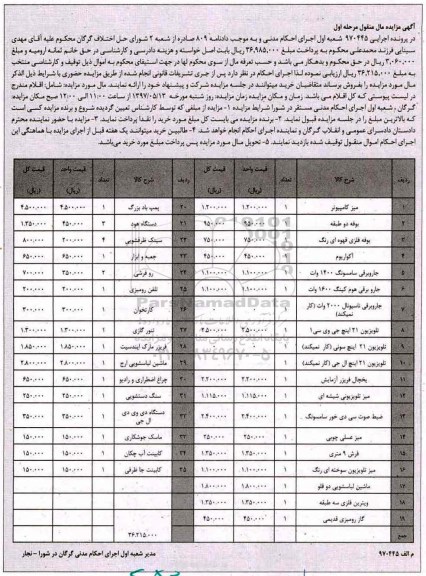 آگهی مزایده مال منقول مرحله اول
در پرونده اجرایی ۹۷۰۴۴۵ شعبه اول اجرای احکام مدنی و به موجب دادنامه ۸۰۹ صادره از شعبه ۲ شورای حل اختلاف گرگان محکوم علیه آقای مهدی
سینایی فرزند محمدعلی محکوم به پرداخت مبلغ ۳۶,۹۸۵,۰۰۰ ریال بابت اصل خواسته و هزینه دادرسی و کارشناسی در حق خانم ارومیه و مبلغ
۳,۰۶۰,۰۰۰ ریال در حق محکوم و بدهکار می باشد و حسب تعرفه مال از سوی محکوم لها در جهت استیفای محکوم به اموال ذیل توقیف و کارشناسی منتخب
به مبلغ ۳۶,۲۱۵,۰۰۰ ریال ارزیابی نموده لذا اجرای احکام در نظر دارد پس از جری تشریفات قانونی انجام شده از طریق مزایده حضوری با شرایط ذیل الذکر
مال مورد مزایده را بفروش برساند متقاضیان خرید میتوانند در جلسه مزایده شرکت و پیشنهاد خود را ارائه نمایند. مال مورد مزایده: شامل اقلام مندرج
در لیست پیوستی که کل اقلام می باشد زمان و مکان مزایده زمان مزایده: روز شنبه مورخه ۱۳۹۷/۰۵/۱۳ از ساعت ۱۱:۰۰ الی ۱۲:۰۰ صبح مکان مزایده:
گرگان، شعبه اول اجرای احکام مدنی مستقر در شورا شرایط مزایده: ۱- مزایده از مبلغی که توسط کارشناس تعیین گردیده شروع و برنده مزایده کسی است
که بالاترین مبلغ را در جلسه مزایده قبول نماید ۲- برنده مزایده می بایست کل مبلغ مورد خرید را نقدا پرداخت نماید. ۳- مزایده با حضور نماینده محترم
دادستان دادسرای عمومی و انقلاب گرگان و نماینده اجرای احکام انجام خواهد شد ۴- طالبین خرید میتوانند یک هفته قبل از اجرای مزایده با هماهنگی این
اجرای احکام اموال منقول توقیف شده بازدید نمایند. ۵- تحویل مال مورد مزایده پس پرداخت مبلغ مورد خرید می باشد.
ردیف شرح کالا تعداد قیمت واحد (ریال) قیمت کل (ریال) ردیف شرح کالا تعداد قیمت واحد (ریال) قیمت کل (ریال)
۱ میز کامپیوتر ۱ ۱,۲۰۰,۰۰۰ ۱,۲۰۰,۰۰۰ ۲۰ پمپ باد بزرگ ۱ ۴,۵۰۰,۰۰۰ ۴,۵۰۰,۰۰۰
۲ بوفه دو طبقه ۱ ۹۵۰,۰۰۰ ۹۵۰,۰۰۰ ۲۱ دستگاه هود ۳ ۴۵۰,۰۰۰ ۱,۳۵۰,۰۰۰
۳ بوفه فلزی قهوه ای رنگ ۱ ۷۵۰,۰۰۰ ۷۵۰,۰۰۰ ۲۲ سینک ظرفشویی ۴ ۲۰۰,۰۰۰ ۸۰۰,۰۰۰
۴ آکواریوم ۱ ۴۵۰,۰۰۰ ۴۵۰,۰۰۰ ۲۳ جعبه و ابزار ۱ ۶۵۰,۰۰۰ ۶۵۰,۰۰۰
۵ جاروبرقی سامسونگ ۱۴۰۰ وات ۱ ۱,۱۰۰,۰۰۰ ۱,۱۰۰,۰۰۰ ۲۴ رو فرشی ۲ ۳۵۰,۰۰۰ ۷۰۰,۰۰۰
۶ جارو برقی هوم کینگ ۱۶۰۰ وات ۱ ۱,۱۰۰,۰۰۰ ۱,۱۰۰,۰۰۰ ۲۵ تلفن رومیزی ۱ ۲۰۰,۰۰۰ ۲۰۰,۰۰۰
۷ جاروبرقی ناسیونال ۲۰۰۰ وات (کار نمیکند) ۱ ۲۶ کارتخوان ۱ ۳۰۰,۰۰۰ ۳۰۰,۰۰۰
۸ تلویزیون ۲۱ اینچ جی وی سی ۱ ۲,۵۰۰,۰۰۰ ۲,۵۰۰,۰۰۰ ۲۷ تنور گازی ۱ ۱,۳۰۰,۰۰۰ ۱,۳۰۰,۰۰۰
۹ تلویزیون ۲۱ اینچ سونی (کار نمیکند) ۱ ۲۸ فریزر مارک ایندسیت ۱ ۱,۸۵۰,۰۰۰ ۱,۸۵۰,۰۰۰
۱۰ تلویزیون ۲۱ اینچ ال جی (کار نمیکند) ۱ ۲۹ ماشین لباسشویی ارج ۱ ۲,۸۰۰,۰۰۰ ۲,۸۰۰,۰۰۰
۱۱ یخچال فریزر آزمایش ۱ ۲,۲۰۰,۰۰۰ ۲,۲۰۰,۰۰۰ ۳۰ چراغ اضطراری و رادیو ۱ ۶۵۰,۰۰۰ ۶۵۰,۰۰۰
۱۲ میز تلویزیونی شیشه ای ۱ ۱,۱۱۵,۰۰۰ ۱,۱۱۵,۰۰۰ ۳۱ سنگ دستشویی ۱ ۲۵۰,۰۰۰ ۲۵۰,۰۰۰
۱۳ ضبط صوت سی دی خور سامسونگ ۱ ۲,۴۰۰,۰۰۰ ۲,۴۰۰,۰۰۰ ۳۲ دستگاه دی وی دی ال جی ۱ ۳۵۰,۰۰۰ ۳۵۰,۰۰۰
۱۴ میز عسلی چوبی ۱ ۲۵۰,۰۰۰ ۲۵۰,۰۰۰ ۳۳ ماسک جوشکاری ۱ ۱۵۰,۰۰۰ ۱۵۰,۰۰۰
۱۵ فرش ۹ متری ۱ ۱,۳۵۰,۰۰۰ ۱,۳۵۰,۰۰۰ ۳۴ کابینت آب چکان ۱ ۱۵۰,۰۰۰ ۱۵۰,۰۰۰
۱۶ میز تلویزیون سوخته ای رنگ ۱ ۱,۱۰۰,۰۰۰ ۱,۱۰۰,۰۰۰ ۳۵ کابینت جا ظرفی ۱ ۱۵۰,۰۰۰ ۱۵۰,۰۰۰
۱۷ ماشین لباسشویی دو قلو ۱ ۱,۸۰۰,۰۰۰ ۱,۸۰۰,۰۰۰
۱۸ ویترین فلزی سه طبقه ۱ ۱,۳۵۰,۰۰۰ ۱,۳۵۰,۰۰۰
۱۹ گاز رومیزی قدیمی ۱ ۴۵۰,۰۰۰ ۴۵۰,۰۰۰
جمع ۳۶,۲۱۵,۰۰۰
م الف ۹۷۰۴۴۵ مدیر شعبه اول اجرای احکام مدنی گرگان در شورا - نجار
ParsNamadData